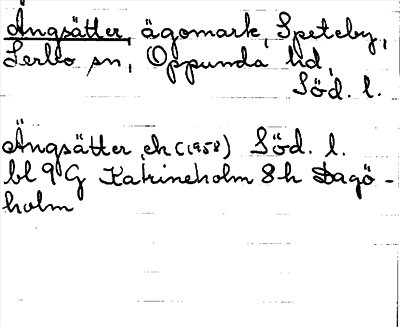 Ängsätter, ägomark, Speteby,
Lerbo sn, Oppunda hd,
Söd. l.
Ängsätter, ek (1958) Söd. l.
bl 9 G Katrineholm 8 h Dagö-
holm